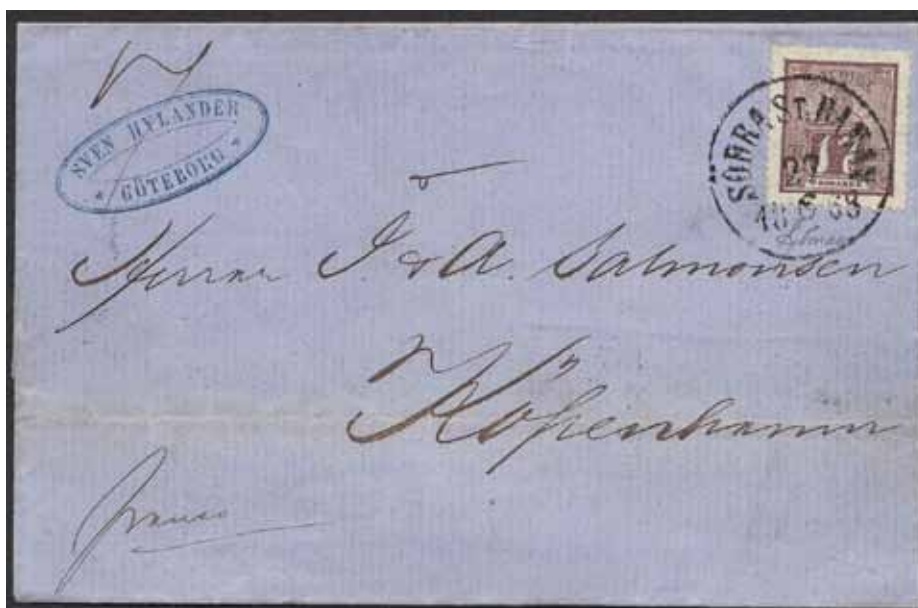 SVEN HYLANDER
GÖTEBORG
SÖDRA ST. BANAN
17
Herrar J. & A. Salmonsen
Köpenhamn
franco